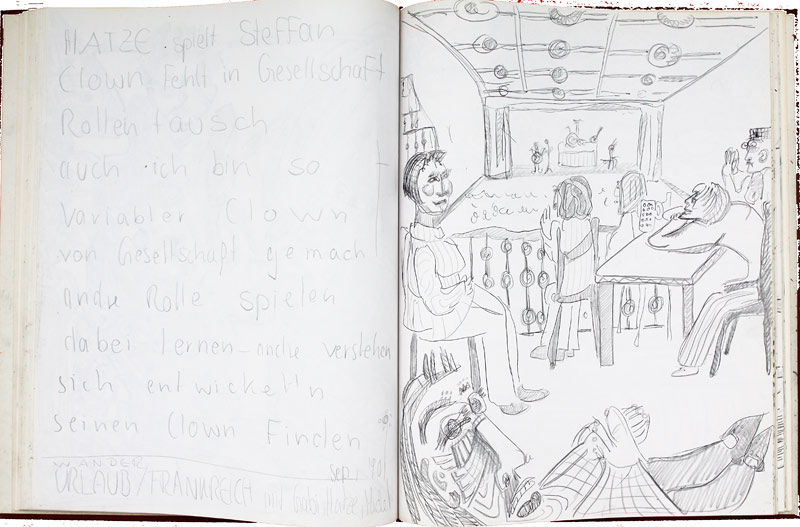 MATZE spielt Steffan
Clown Fehlt in Gesellschaft
Rollentausch
auch ich bin so
Variabler Clown
von Gesellschaft gemach
andre Rolle spielen
dabei lernen - andre verstehen
sich entwickeln
seinen Clown Finden
WANDER
URLAUB/FRANKREICH mit Gabi, Matze,